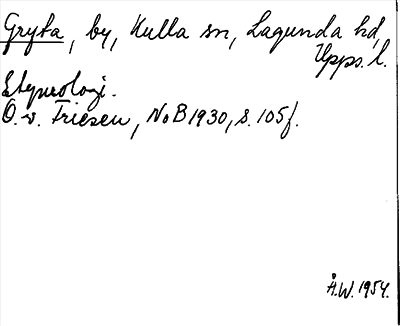 Gryta, by, Kulla sn, Lagunda hd,
Upps. l.
Etymologi.
O. v. Friesen, NoB 1930, s. 105f.
Å.W. 1954.